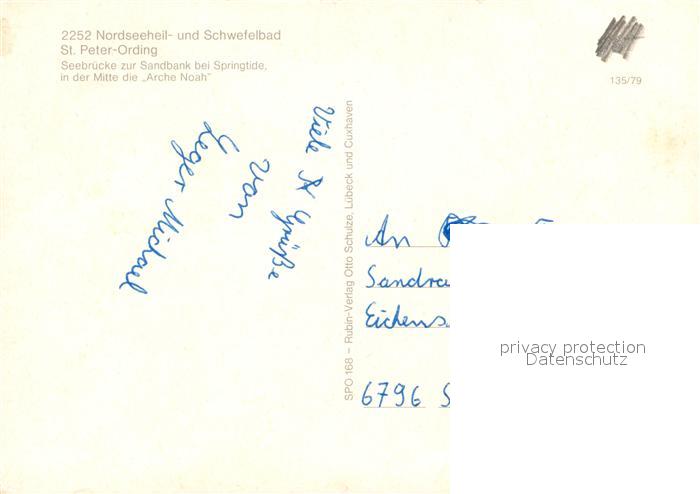 2252 Nordseeheil- und Schwefelbad
St. Peter-Ording
Seebrücke zur Sandbank bei Springtide,
in der Mitte die „Arche Noah"
135/79
Viele Grüße
von
Leger Michael
SPO 168 – Rubin-Verlag Otto Schulze, Lübeck und Cuxhaven
An
Sandra
Eichens
6796 S
privacy protection
Datenschutz